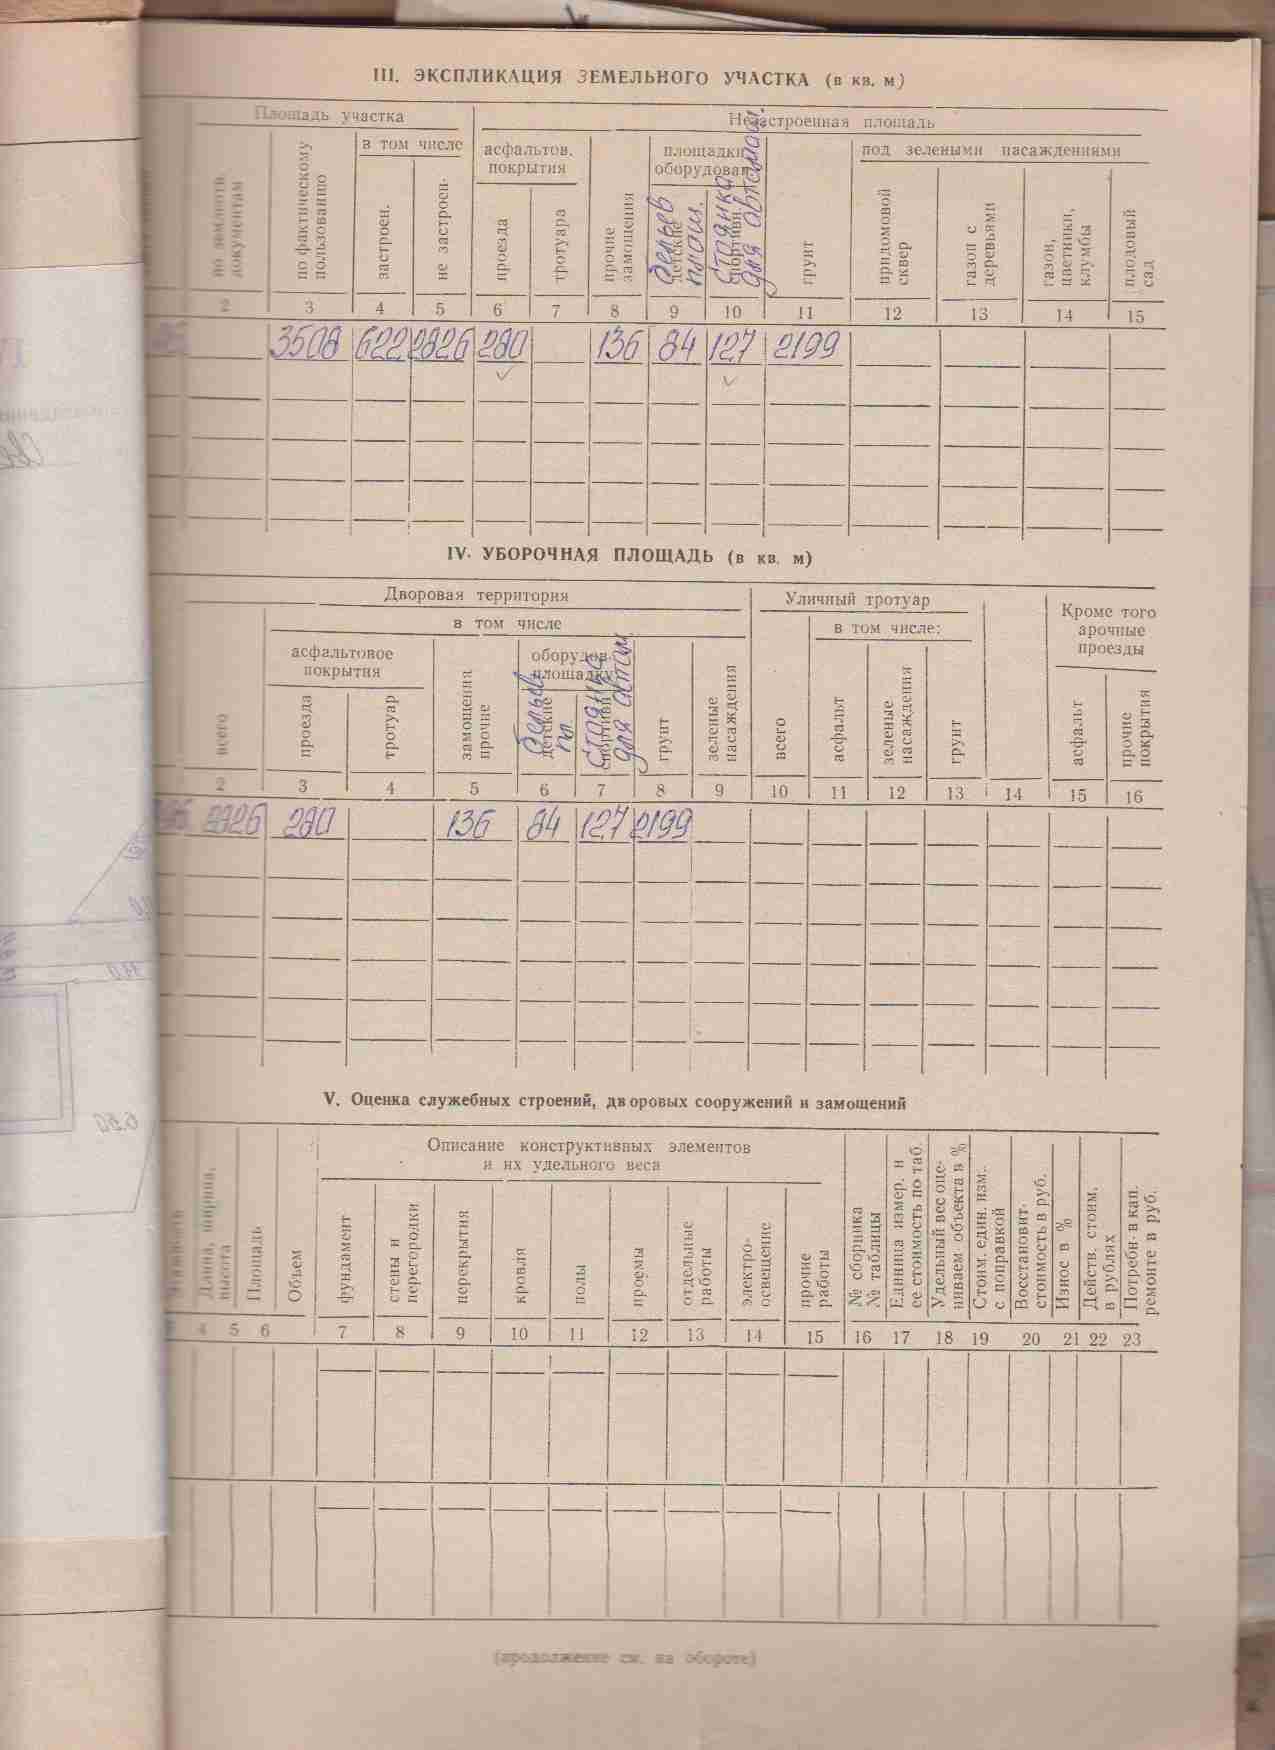 III. ЭКСПЛИКАЦИЯ ЗЕМЕЛЬНОГО УЧАСТКА (в кв. м)
Площадь участка
Незастроенная площадь
в том числе
асфальтов. покрытия
площадки оборудован.
под зелеными насаждениями
по землеотв. документам
по фактическому пользованию
застроен.
не застроен.
проезда
тротуара
прочие замощения
детские
бельев площ.
спортивн.
стоянка для автомаш.
грунт
придомовой сквер
газон с деревьями
газон, цветники, клумбы
плодовый сад
2 3 4 5 6 7 8 9 10 11 12 13 14 15
3508 622 2826 280 136 84 127 2199
IV. УБОРОЧНАЯ ПЛОЩАДЬ (в кв. м)
Дворовая территория
Уличный тротуар
Кроме того арочные проезды
в том числе
в том числе:
асфальтовое покрытия
оборудов. площадку
всего
проезда
тротуар
замощения прочие
детские
бельев. пл.
спортивн.
стоянка для автом.
грунт
зеленые насаждения
всего
асфальт
зеленые насаждения
грунт
асфальт
прочие покрытия
2 3 4 5 6 7 8 9 10 11 12 13 14 15 16
2826 280 136 84 127 2199
V. Оценка служебных строений, дворовых сооружений и замощений
Описание конструктивных элементов
и их удельного веса
Длина, ширина, высота
Площадь
Объем
фундамент
стены и перегородки
перекрытия
кровля
полы
проемы
отдельные работы
электро-освещение
прочие работы
№ сборника № таблицы
Единица измер. и ее стоимость по таб.
Удельный вес оце-ниваем объекта в %
Стоим. един. изм. с поправкой
Восстановит-стоимость в руб.
Износ в %
Действ. стоим. в рублях
Потребн- в кап. ремонте в руб.
3 4 5 6 7 8 9 10 11 12 13 14 15 16 17 18 19 20 21 22 23
(продолжение см. на обороте)